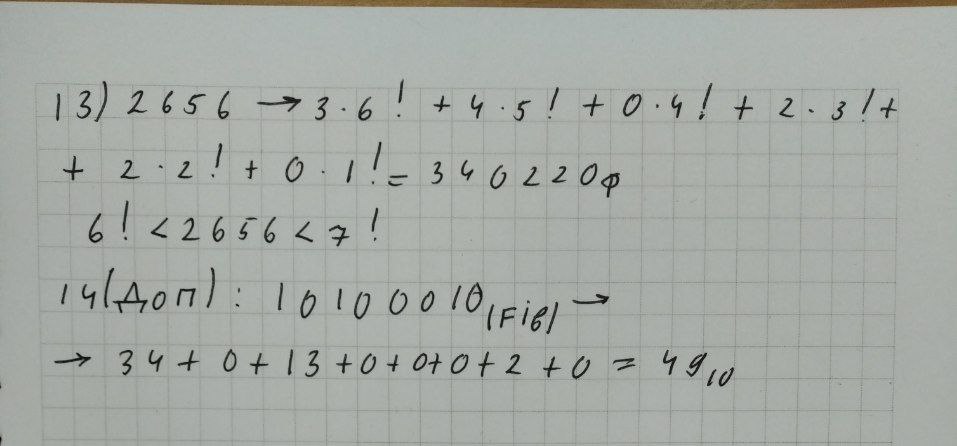 13) 2656 → 3 · 6! + 4 · 5! + 0 · 4! + 2 · 3! +
+ 2 · 2! + 0 · 1! = 340220ф
6! < 2656 < 7!
14(Доп): 10100010(Fib) →
→ 34 + 0 + 13 + 0 + 0 + 0 + 2 + 0 = 49₁₀